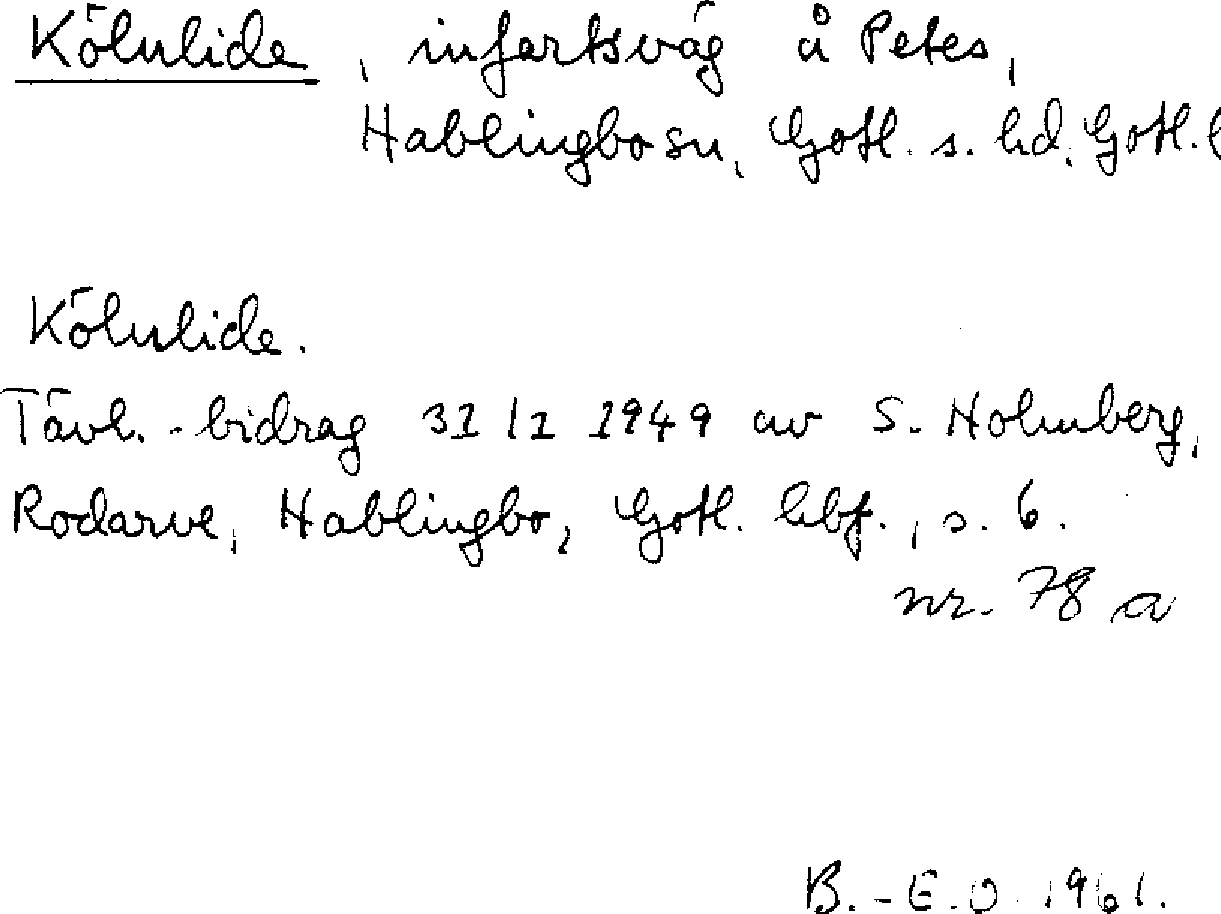 Kölnlide, infartsväg å Petes,
Hablingbo sn, Gotl. s. hd. Gotl. l
Kölnlide.
Tävl.-bidrag 31/1 1949 av S. Holmberg,
Rodarve, Hablingbo, Gotl. hbf., s. 6.
nr. 78 a
B.-E.O. 1961.